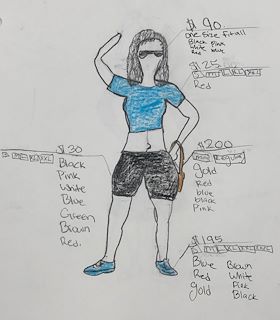 $90
One Size fit all
Black Pink
White blue
Red
$25
S M L XL XXL
Red
$30
Black
Pink
White
Blue
Green
Brown
Red
$200
gold
Red
blue
black
Pink
$195
S M L XL XXL
Blue Brown
Red White
gold Pink
Black